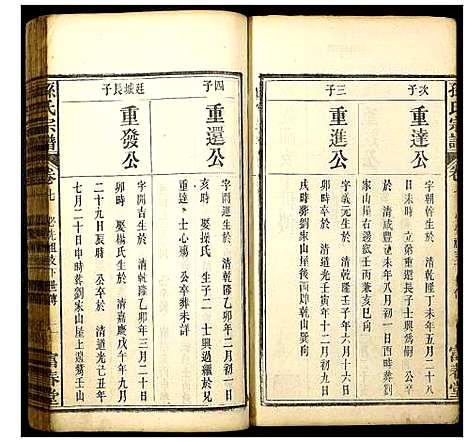 孫氏宗譜
卷七
次子
重達公
字朝幹生於 清乾隆丁未年五月二十八
日未時 立弟重還長子士興爲嗣 公卒
於 清咸豐丁未年八月初三日未時葬劉
家山屋右邊嶺壬丙兼亥巳向
三子
重進公
字義元生於 清乾隆 年六月十六日
公卒於 清道光壬寅年十二月初九日
戌時葬劉家山屋後 乾山巽向
四子
重還公
字開運生於 清乾隆乙卯年二月初一日
亥時 娶操氏 生子二 士興過繼與兄
重達 士心殤 公卒葬未詳
廷城長子
重發公
字開吉生於 清乾隆乙卯年三月二十日
卯時 娶楊氏生於 清嘉慶戊午年九月
二十九日辰時 公卒於 清道光己丑年
七月二十日申時葬劉家山屋上邊 壬山
孫氏宗譜
卷七
富春堂